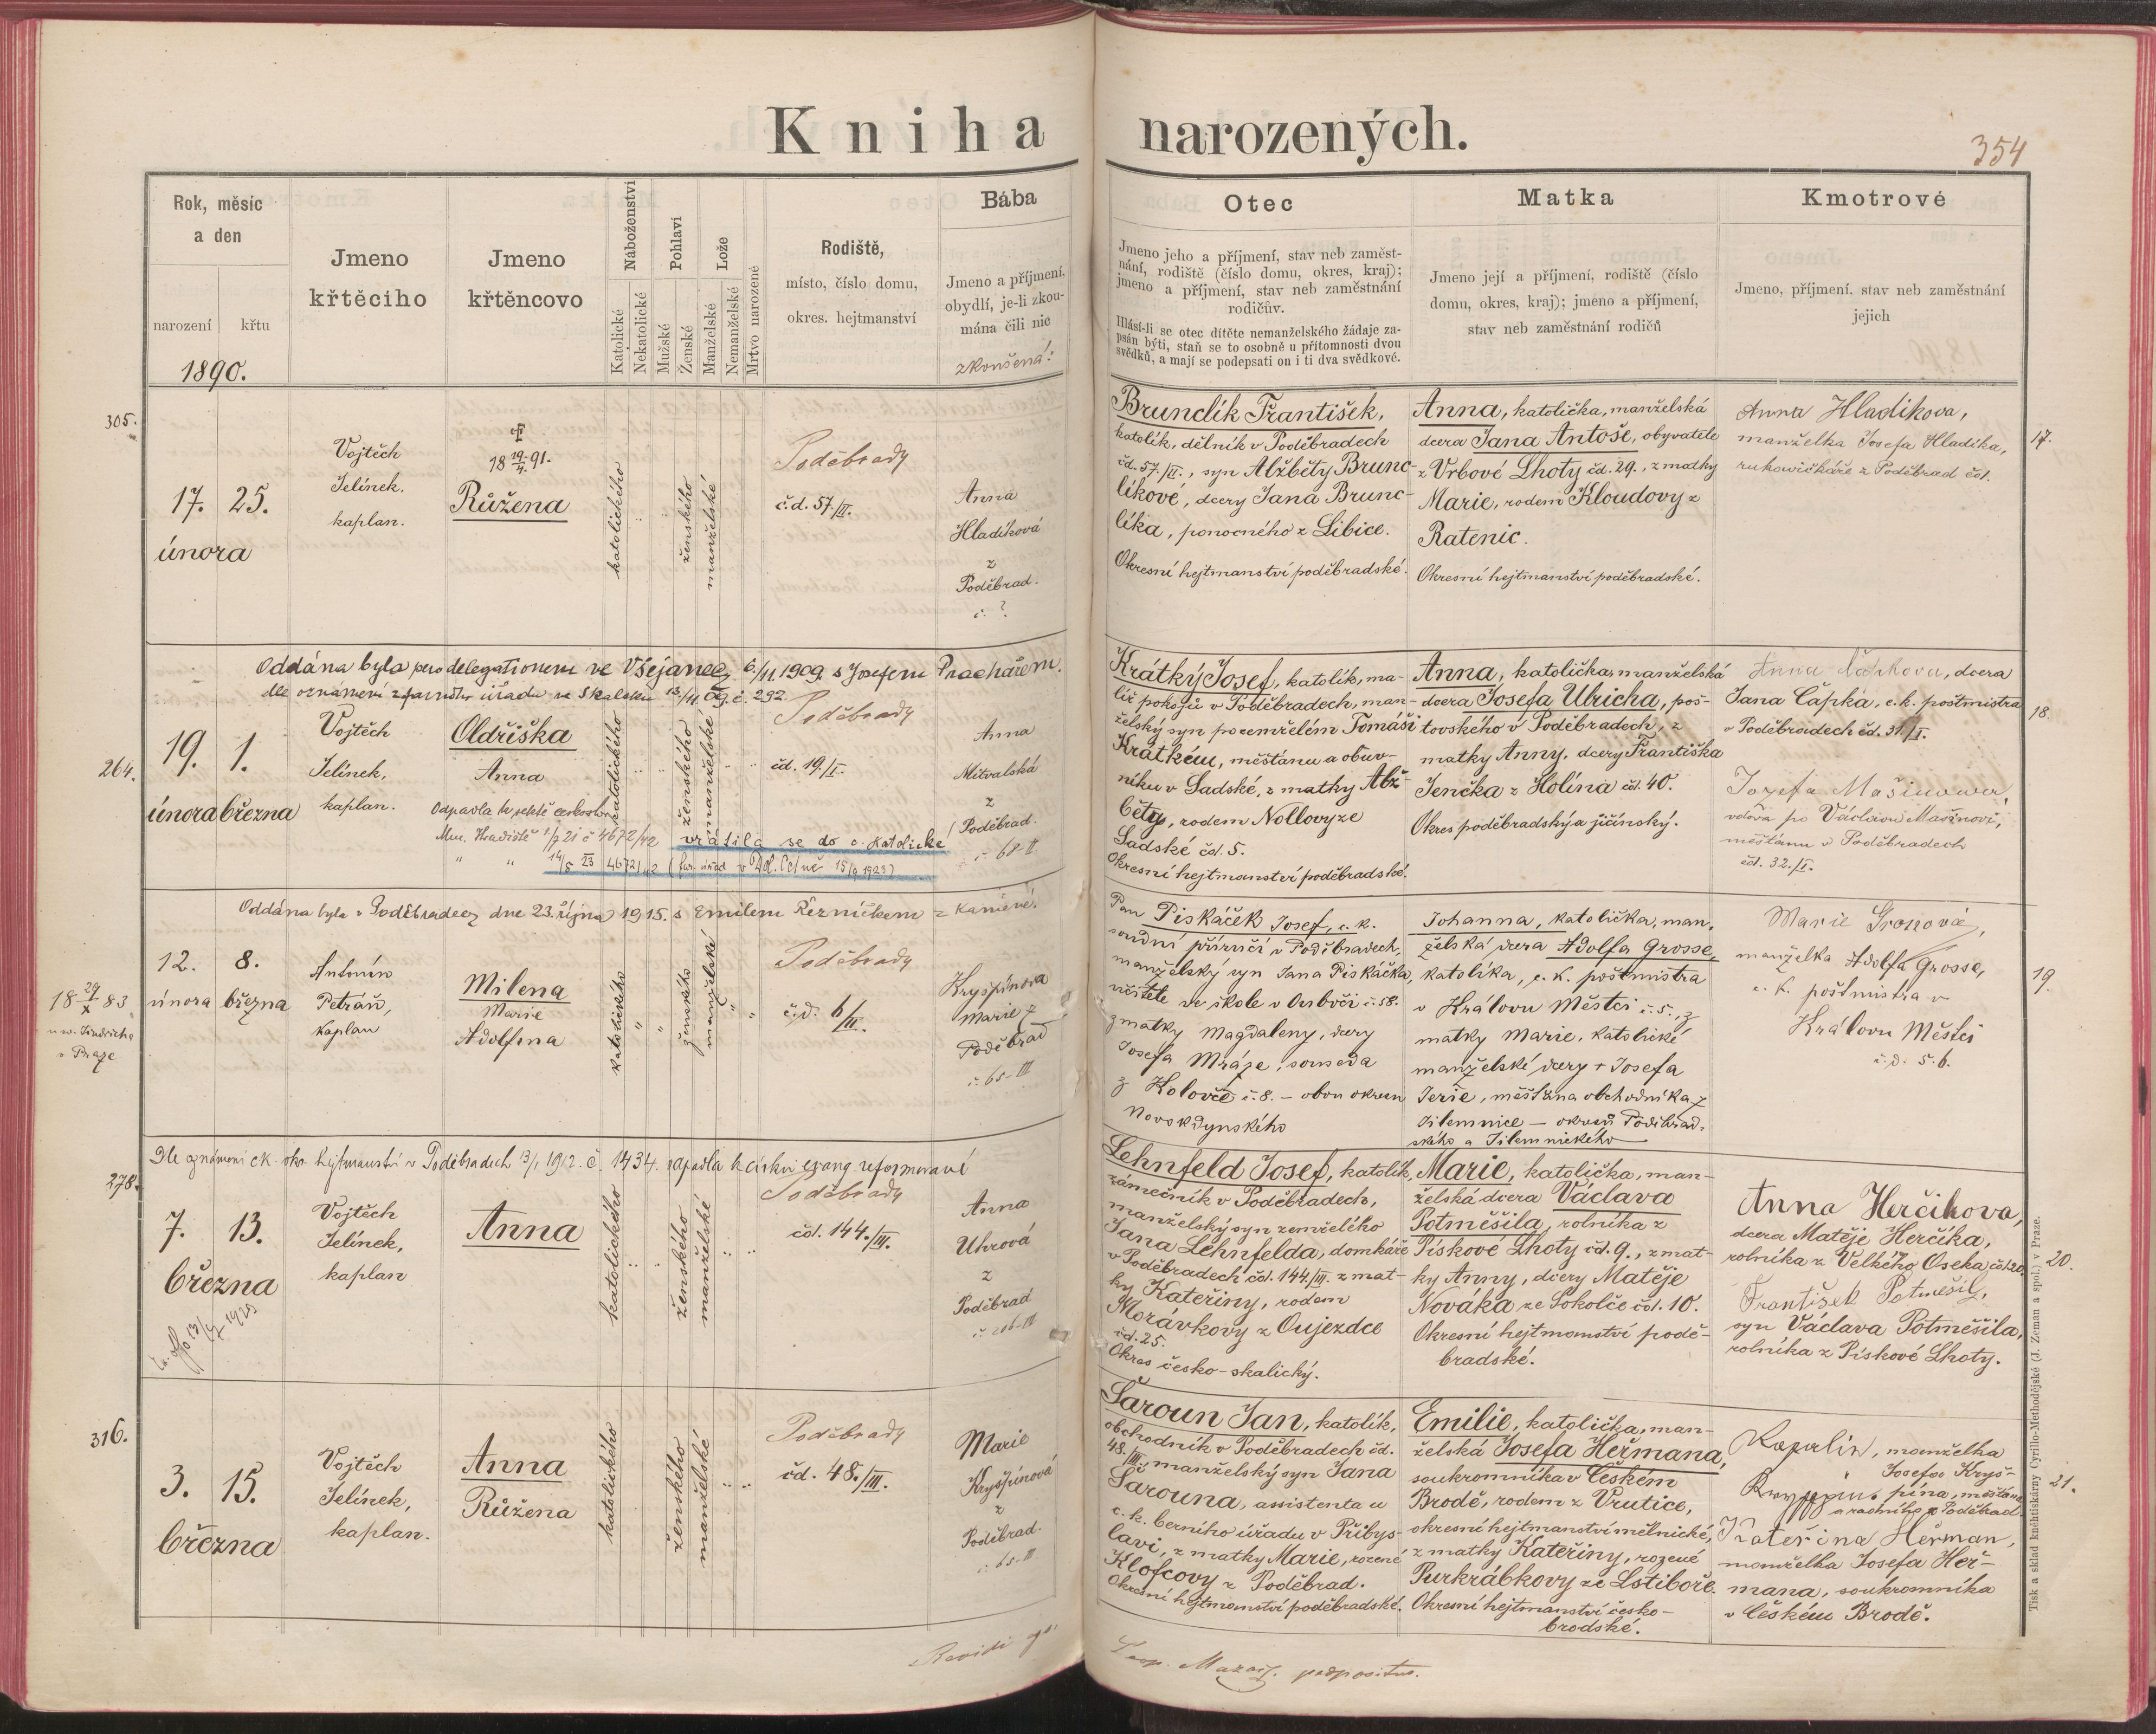 Kniha narozených.
354
Rok, měsíc
a den
narození
křtu
1890.
Jmeno
křtěcího
Jmeno
křtěncovo
Náboženství
Katolické
Nekatolické
Pohlaví
Mužské
Ženské
Lože
Manželské
Nemanželské
Mrtvo narozené
Rodiště,
místo, číslo domu,
okres. hejtmanství
Bába
Jmeno a příjmení,
obydlí, je-li zkou-
mána čili nic
zkoušená:
Otec
Jmeno jeho a příjmení, stav neb zaměst-
nání, rodiště (číslo domu, okres, kraj);
jmeno a příjmení, stav neb zaměstnání
rodičův.
Hlásí-li se otec dítěte nemanželského žádaje za-
psán býti, staň se to osobně u přítomnosti dvou
svědků, a mají se podepsati on i ti dva svědkové.
Matka
Jmeno její a příjmení, rodiště (číslo
domu, okres, kraj); jmeno a příjmení,
stav neb zaměstnání rodičů
Kmotrové
Jmeno, příjmení, stav neb zaměstnání
jejich
305.
17. 25.
února
Vojtěch
Jelínek,
kaplan.
18 19/4. 91.
Růžena
katolického
ženského
manželské
Poděbrady
č.d. 57./II.
Anna
Hladíková
z
Poděbrad.
č. ?
Brunclík František,
katolík, dělník v Poděbradech
čd. 57./II., syn Alžběty Brunc-
líkové, dcery Jana Brunc-
líka, ponocného z Libice.
Okresní hejtmanství poděbradské.
Anna, katolička, manželská
dcera Jana Antoše, obyvatele
z Vrbové Lhoty čd. 29., z matky
Marie, rodem Kloudovy z
Ratenic.
Okresní hejtmanství poděbradské.
Anna Hladikova,
manželka Josefa Hladíka,
rukavičkáře z Poděbrad čd.
17.
Oddána byla per delegationem ve Všejanech 6/11. 1909. s Josefem Prachařem.
dle oznámení farního úřadu ve Skalsku 13/11 09. č. 292.
264.
19. 1.
února března
Vojtěch
Jelínek,
kaplan.
Oldřiška
Anna
Odpadla k sektě českoslov.
Mn. Hradiště 1/7 21 č 4672/42
" " 14/5 23 4672/42
vrátila se do c. katolické
15/9 1923)
katolického
ženského
manželské
Poděbrady
čd. 19./I.
Anna
Mitvalská
z
Poděbrad.
č. 68-II.
Krátký Josef, katolík, ma-
líř pokojů v Poděbradech, man-
želský syn po zemřelém Tomáši
Krátkém, měšťanu a obuv-
níku v Sadské, z matky Alž-
běty, rodem Nollovy ze
Sadské čd. 5.
Okresní hejtmanství poděbradské.
Anna, katolička, manželská
dcera Josefa Ulricha, poš-
tovského v Poděbradech, z
matky Anny, dcery Františka
Jenčka z Holína čd. 40.
Okres poděbradský a jičínský.
Anna Čapkova, dcera
Jana Čapka, c. k. poštmistra
v Poděbradech čd. 31./I.
Josefa Mašinova,
vdova po Václavu Mašinovi,
měšťanu v Poděbradech
čd. 32./I.
18.
Oddána byla v Poděbradech dne 23. října 1915. s Emilem Řezníčkem z Kamené.
18 29/X 83
u sv. Jindřicha
v Praze
12. 8.
února března
Antonín
Petráň,
kaplan
Milena
Marie
Adolfina
katolického
ženského
manželské
Poděbrady
č.d. 6/II.
Kryšpínová
Marie z
Poděbrad
č. 65-III
Pan Piskáček Josef, c. k.
soudní příručí v Poděbradech,
manželský syn Jana Piskáčka,
učitele ve škole v Oubočí č. 58.
z matky Magdaleny, dcery
Josefa Mráze, souseda
z Koloveč č. 8. – obou okresu
Novokdynského
Johanna, katolička, man-
želská dcera Adolfa Grosse,
katolíka, c. k. poštmistra
v Královu Městci č. 5., z
matky Marie, katolické
manželské dcery + Josefa
Jerie, měšťana obchodníka z
Jilemnice – okresů Poděbrad-
ského a Jilemnického
Marie Grosová,
manželka Adolfa Grosse,
c. k. poštmistra v
Královu Městci
č. d. 5. b.
19.
Dle oznámení c.k. okr. hejtmanství v Poděbradech 13/1 1912. č. 1434. odpadla k církvi evang. reformované
278.
7. 13.
března
Vojtěch
Jelínek,
kaplan
Anna
katolického
ženského
manželské
Poděbrady
čd. 144./III.
Anna
Uhrová
z
Poděbrad
č. 206-III
Lehnfeld Josef, katolík,
zámečník v Poděbradech,
manželský syn zemřelého
Jana Lehnfelda, domkáře
v Poděbradech čd. 144./III. z mat-
ky Kateřiny, rodem
Morávkovy z Oujezdce
čd. 25.
Okres česko-skalický.
Marie, katolička, man-
želská dcera Václava
Potměšila, rolníka z
Pískové Lhoty čd. 9., z mat-
ky Anny, dcery Matěje
Nováka ze Sokolče čd. 10.
Okresní hejtmanství podě-
bradské.
Anna Herčikova,
dcera Matěje Herčíka,
rolníka z Velkého Oseka čd. 20.
František Potměšil,
syn Václava Potměšila,
rolníka z Pískové Lhoty.
20.
316.
3. 15.
března
Vojtěch
Jelínek,
kaplan.
Anna
Růžena
katolického
ženského
manželské
Poděbrady
čd. 48./III.
Marie
Kryšpínová
z
Poděbrad.
č. 65-III
Šaroun Jan, katolík,
obchodník v Poděbradech čd.
48./III., manželský syn Jana
Šarouna, assistenta u
c. k. berního úřadu v Přibys-
lavi, z matky Marie, rozené
Klofcovy z Poděbrad.
Okresní hejtmanství poděbradské.
Emilie, katolička, man-
želská Josefa Heřmana,
soukromníka v Českém
Brodě, rodem z Vrutice,
okresní hejtmanství mělnické,
z matky Kateřiny, rozené
Purkrábkovy ze Lstiboře.
Okresní hejtmanství česko-
brodské.
manželka
Josefa Kryš-
pína, měšťana
a radního z Poděbrad.
Kateřina Heřman,
manželka Josefa Heř-
mana, soukromníka
v Českém Brodě.
21.
Revidi
Tisk a sklad knihtiskárny Cyrillo-Methodějské (J. Zeman a spol.) v Praze.